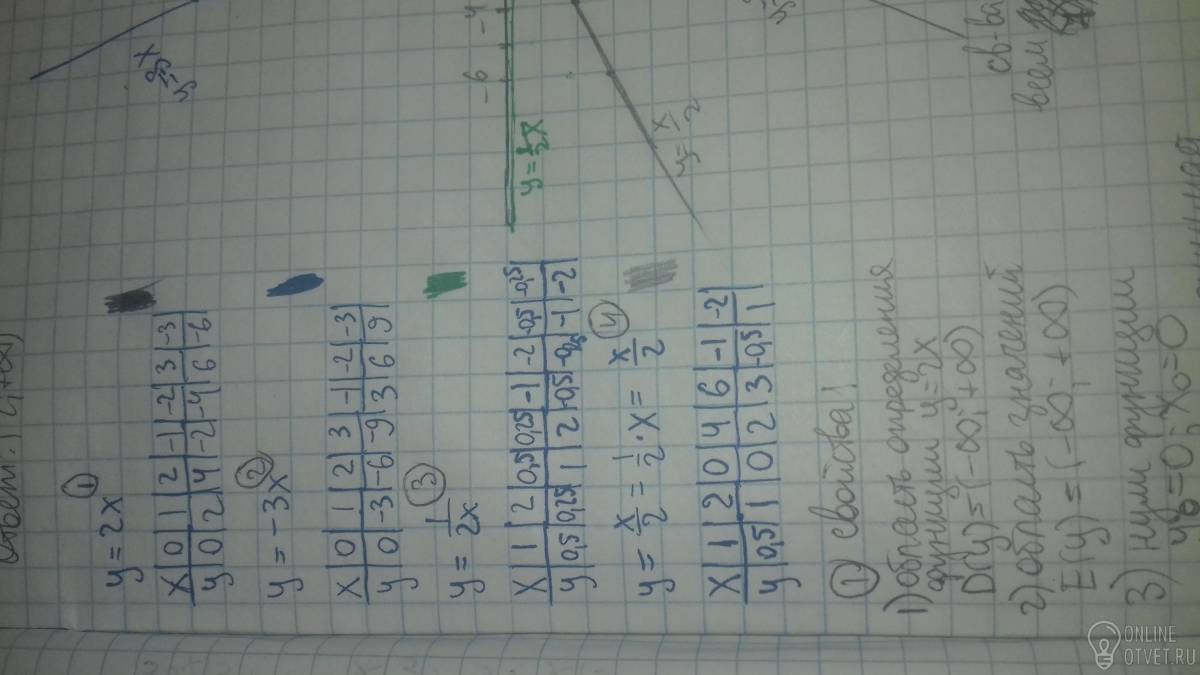 Ответ:
①
y = 2x
X | 0 | 1 | 2 | -1 | -2 | 3 | -3 |
y | 0 | 2 | 4 | -2 | -4 | 6 | -6 |
②
y = -3x
X | 0 | 1 | 2 | 3 | -1 | -2 | -3 |
y | 0 | -3 | -6 | -9 | 3 | 6 | 9 |
③
y = 1/2x
X | 1 | 2 | 0,5 | 0,25 | -1 | -2 | -0,5 | -0,25
y | 0,5 | 0,25 | 1 | 2 | -0,5 | -0,25 | -1 | -2
④
y = x/2 = 1/2 · x = x/2
X | 1 | 2 | 0 | 4 | 6 | -1 | -2 |
y | 0,5 | 1 | 0 | 2 | 3 | -0,5 | 1
① свойства!
1) область определения
функции y=2x
D(y)=(-∞; +∞)
2) область значений
E(y)=(-∞; +∞)
3) нули функции
y0=0; x0=0
-6 -4
y = 1/2x
y = x/2
св-ва
всем
ONLINE
OTVET.RU